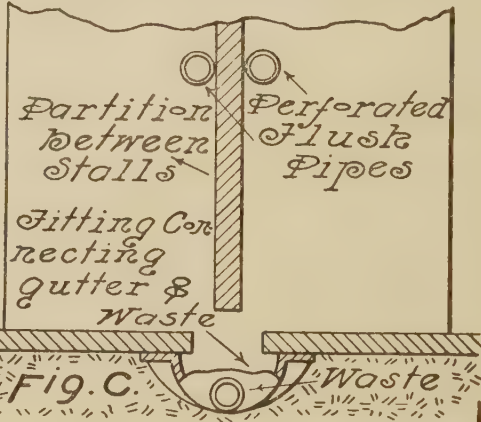 Partition
between
Stalls
Perforated
Flush
Pipes
Fitting Con
necting
gutter &
Waste
Waste
Fig. C.